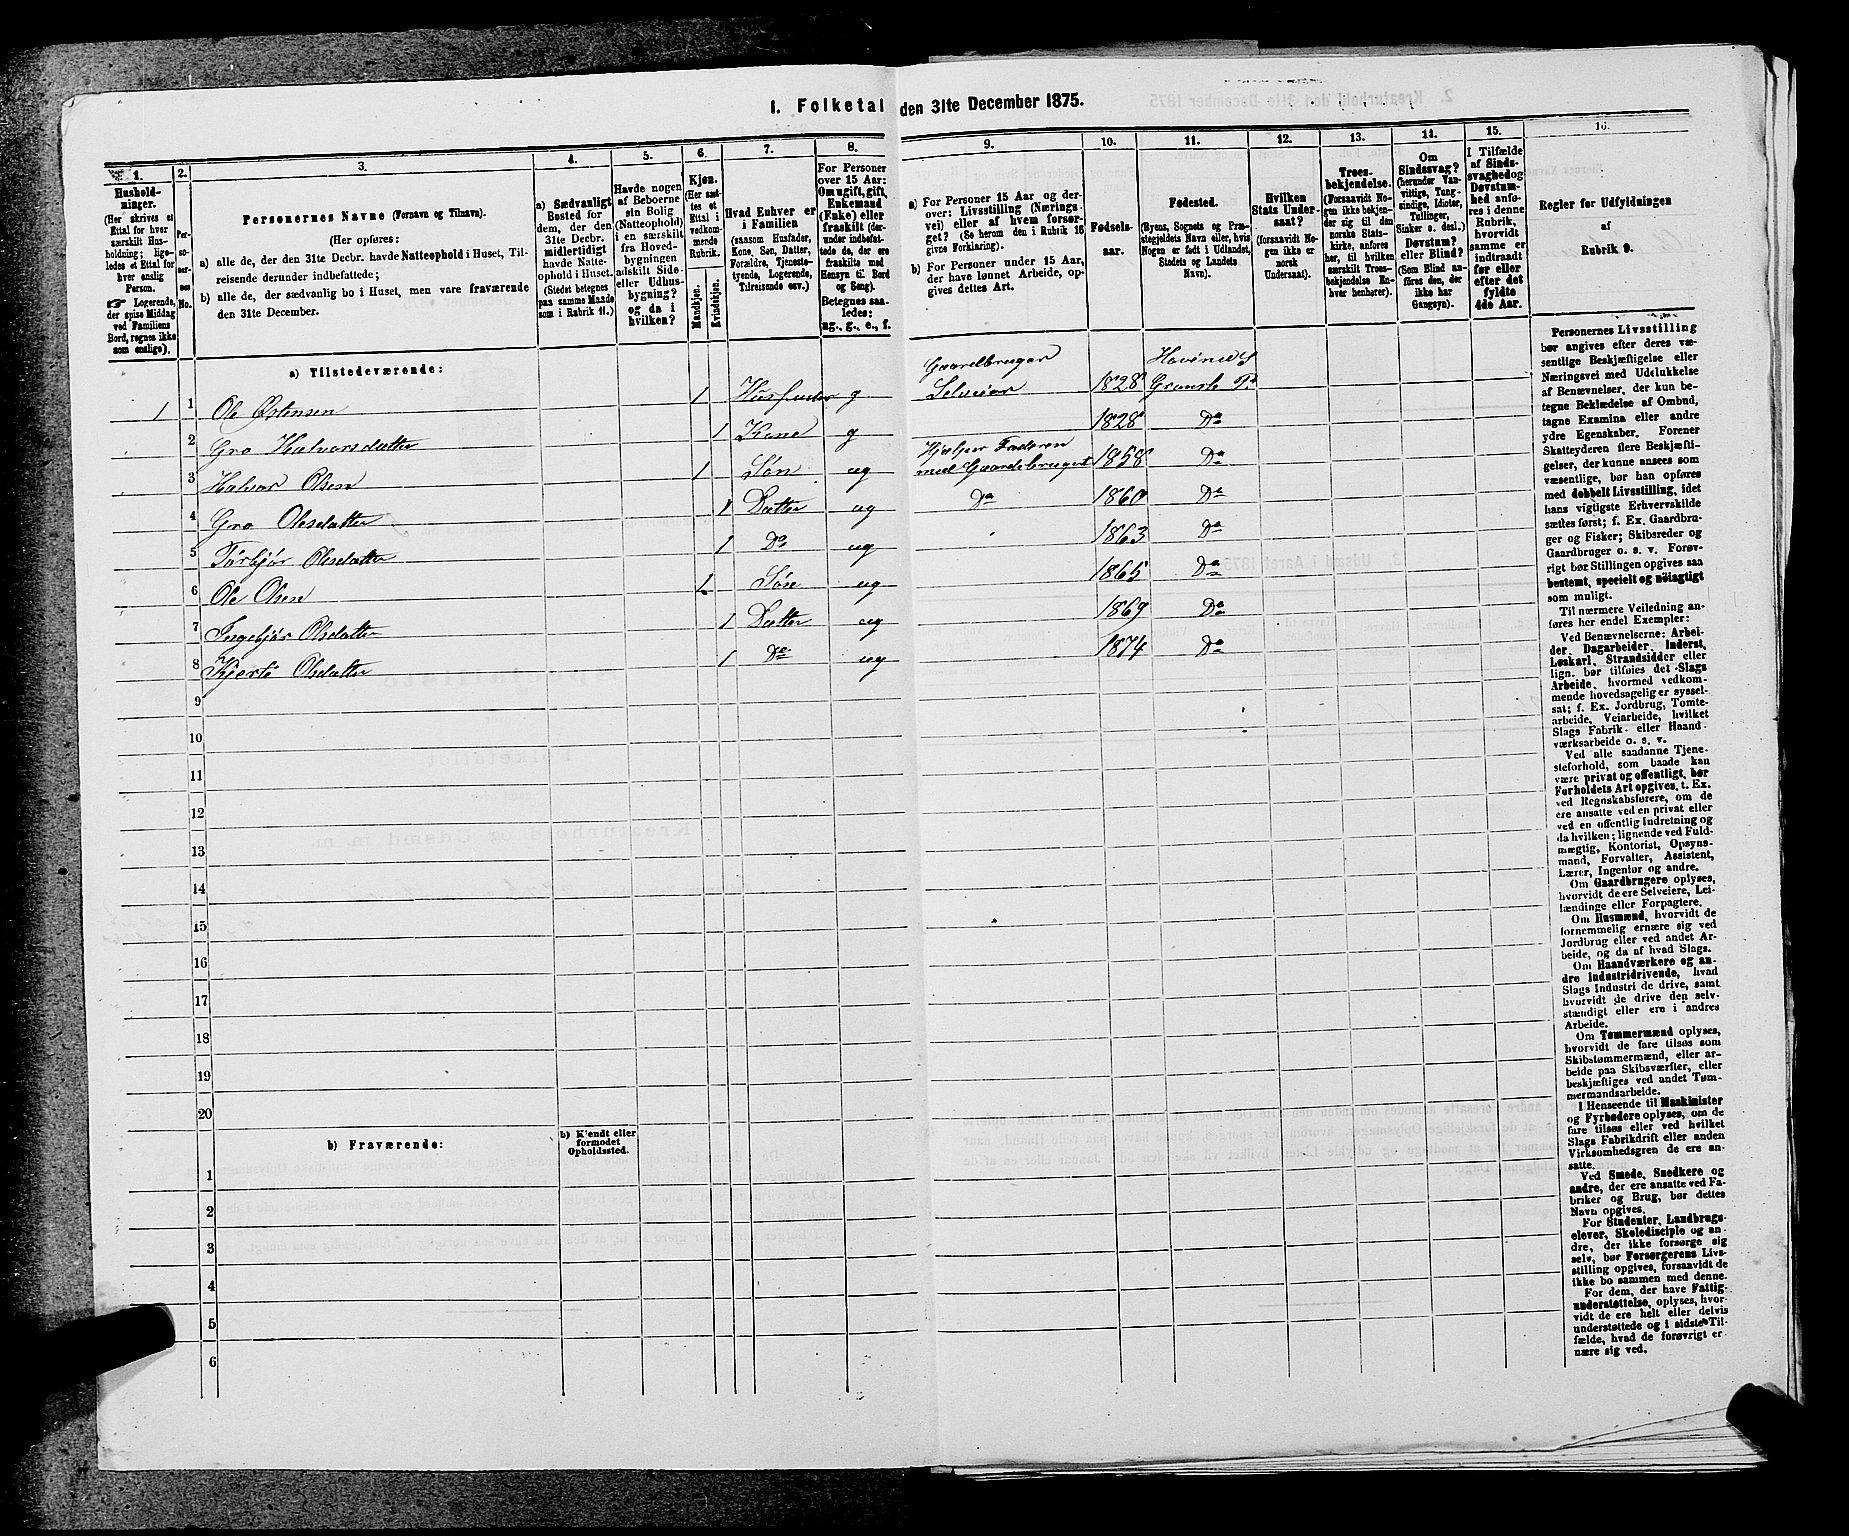 1. Folketal den 31te December 1875.
1. 2. 3. 4. 5. 6. 7. 8. 9. 10. 11. 12. 13. 14. 15. 16.
Hushold-
ninger.
(Her skrives et
Ettal for hver
særskilt Hus-
holdning; lige-
ledes et Ettal for
hver enslig
Person.
☛ Logerende,
der spise Middag
ved Familiens
Bord, regnes ikke
som enslige).
Per-
soner-
nes
No.
Personernes Navne (Fornavn og Tilnavn).
(Her opføres:
a) alle de, der den 31te Decbr. havde Natteophold i Huset, Til-
reisende derunder indbefattede;
b) alle de, der sædvanlig bo i Huset, men vare fraværende
den 31te December.
a) Sædvanligt
Bosted for
dem, der den
31te Decbr.
midlertidigt
havde Natte-
ophold i Huset.
(Stedet betegnes
paa samme Maade
som i Rubrik 11.)
Havde nogen
af Beboerne
sin Bolig
(Natteophold)
i en særskilt
fra Hoved-
bygningen
adskilt Side-
eller Udhus-
bygning?
og da i
hvilken?
Kjøn.
(Her sæt-
tes et
Ettal i
vedkom-
mende
Rubrik.
Mandkjøn.
Kvindekjøn.
Hvad Enhver er
i Familien
(saasom Husfader,
Kone, Søn, Datter,
Forældre, Tjeneste-
tyende, Logerende,
Tilreisende osv.)
For Personer
over 15 Aar:
Om ugift, gift,
Enkemand
(Enke) eller
fraskilt (der-
under indbefat-
tede de, der ere
fraskilte med
Hensyn til Bord
og Seng).
Betegnes saa-
ledes:
ug., g., e., f.
a) For Personer 15 Aar og der-
over: Livsstilling (Nærings-
vei) eller af hvem forsør-
get? (Se herom den i Rubrik 16
givne Forklaring).
b) For Personer under 15 Aar,
der have lønnet Arbeide, op-
gives dettes Art.
Fødsels-
aar.
Fødested.
(Byens, Sognets og Præ-
stegjeldets Navn eller, hvis
Nogen er født i Udlandet,
Stedets og Landets
Navn).
Hvilken
Stats Under-
saat?
(forsaavidt No-
gen ikke er
norsk
Undersaat).
Troes-
bekjendelse.
(Forsaavidt No-
gen ikke bekjen-
der sig til den
norske Stats-
kirke, anføres
her, til hvilken
særskilt Troes-
bekjendelse En-
hver henhører).
Om
Sindssvag?
(herunder Van-
vittige, Tung-
sindige, Idioter,
Tullinger,
Sinker o. desl.)
Døvstum?
eller Blind?
(Som Blind an-
føres den, der
ikke har
Gangsyn).
I Tilfælde
af Sinds-
svaghed og
Døvstum-
hed anfø-
res i denne
Rubrik,
hvorvidt
samme er
indtraadt
før eller
efter det
fyldte
4de Aar.
Regler for Udfyldningen
af
Rubrik 9.
a) Tilstedeværende:
1 1 Ole Østensen 1 Husfader g Gaardbruger Selveier 1828 Hovin S Gransh. P.
2 Gro Halvorsdatter 1 Kone g 1828 Do
3 Halvor Olsen 1 Søn ug Hjælper Faderen med Gaardsbruget 1858 Do
4 Gro Olesdatter 1 Datter ug Do 1860 Do
5 Torbjør Olesdatter 1 Do ug 1863 Do
6 Ole Olsen 1 Søn ug 1865 Do
7 Ingebjør Olsdatter 1 Datter ug 1869 Do
8 Kjersti Olsdatter 1 Do ug 1874 Do
9
10
11
12
13
14
15
16
17
18
19
20
b) Fraværende:
b) Kjendt eller
formodet
Opholdssted.
1
2
3
4
5
6
Personernes Livsstilling
bør angives efter deres væ-
sentlige Beskjæftigelse eller
Næringsvei med Udelukkelse
af Benævnelser, der kun be-
tegne Beklædelse af Ombud,
tagne Examina eller andre
ydre Egenskaber. Forener
Skatteyderen flere Beskjæfti-
gelser, der kunne ansees som
væsentlige, bør han opføres
med dobbelt Livsstilling, idet
hans vigtigste Erhvervskilde
sættes først; f. Ex. Gaardbru-
ger og Fisker; Skibsreder og
Gaardbruger o. s. v. Forøv-
rigt bør Stillingen opgives saa
bestemt, specielt og nøiagtigt
som muligt.
Til nærmere Veiledning an-
føres her endel Exempler:
Ved Benævnelserne: Arbei-
der, Dagarbeider, Inderst,
Løskarl, Strandsidder eller
lign. bør tilføies det Slags
Arbeide, hvormed vedkom-
mende hovedsagelig er syssel-
sat; f. Ex. Jordbrug, Tomte-
arbeide, Veiarbeide, hvilket
Slags Fabrik- eller Haand-
værksarbeide o. s. v.
Ved alle saadanne Tjene-
steforhold, som baade kan
være privat og offentligt, bør
Forholdets Art opgives, t. Ex.
ved Regnskabsførere, om de
ere ansatte ved en privat eller
ved en offentlig Indretning og
da hvilken; lignende ved Fuld-
mægtig, Kontorist, Opsyns-
mand, Forvalter, Assistent,
Lærer, Ingeniør og andre.
Om Gaardbrugere oplyses,
hvorvidt de ere Selveiere, Lei-
lændinge eller Forpagtere.
Om Husmænd, hvorvidt de
fornemmelig ernære sig ved
Jordbrug eller ved andet Ar-
beide, og da af hvad Slags.
Om Haandværkere og an-
dre Industridrivende, hvad
Slags Industri de drive, samt
hvorvidt de drive den selv-
stændigt eller ere i andres
Arbeide.
Om Tømmermænd oplyses,
hvorvidt de fare tilsøs som
Skibstømmermænd, eller ar-
beide paa Skibsværfter, eller
beskjæftiges ved andet Tøm-
mermandsarbeide.
I Henseende til Maskinister
og Fyrbødere oplyses, om de
fare tilsøs eller ved hvilket
Slags Fabrikdrift eller anden
Virksomhedsgren de ere an-
satte.
Ved Smede, Snedkere og
andre, der ere ansatte ved Fa-
briker og Brug, bør dettes
Navn opgives.
For Studenter, Landbrugs-
elever, Skoledisciple og an-
dre, der ikke forsørge sig
selv, bør Forsørgerens Livs-
stilling opgives, forsaavidt de
ikke bo sammen med denne.
For dem, der have Fattig-
understøttelse, oplyses, hvor-
vidt de ere helt eller delvis
understøttede og i sidste Til-
fælde, hvad de forøvrigt er-
nære sig ved.